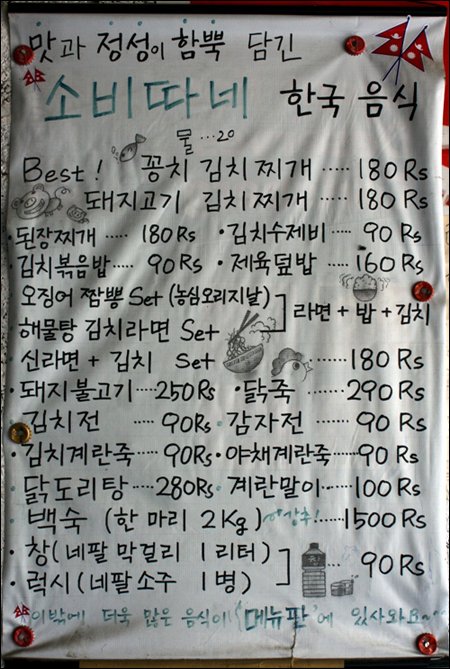 맛과 정성이 함뿍 담긴
소비따네 한국 음식
물...20
Best! 꽁치 김치찌개 ..... 180 Rs
돼지고기 김치찌개 ..... 180 Rs
·된장찌개 ..... 180 Rs ·김치수제비 ..... 90 Rs
·김치볶음밥 ..... 90 Rs ·제육덮밥 ..... 160 Rs
오징어 짬뽕 Set (농심오리지날)
해물탕 김치라면 Set
라면 + 밥 + 김치
·신라면 + 김치 Set ...... 180 Rs
·돼지불고기 .... 250 Rs ·닭죽 ....... 290 Rs
·김치전 ..... 90 Rs ·감자전 ...... 90 Rs
·김치계란죽 .... 90 Rs ·야채계란죽 .... 90 Rs
·닭도리탕 .... 280 Rs ·계란말이 .... 100 Rs
·백숙 (한 마리 2Kg) 강추! ..... 1500 Rs
·창 (네팔 막걸리 1리터)
·럭시 (네팔 소주 1병)
90 Rs
이밖에 더욱 많은 음식이 '메뉴판'에 있사와요~